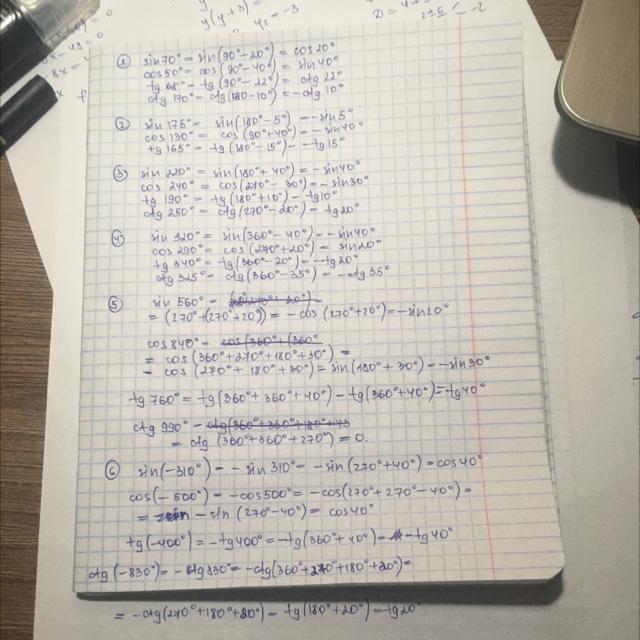 y(y+3) =
y₂ = -3
① sin70° = sin(90°-20°) = cos20°
cos50° = cos(90°-40°) = sin40°
tg68° = tg(90°-22°) = ctg22°
ctg170° = ctg(180-10°) = -ctg10°
② sin175° = sin(180°-5°) = -sin5°
cos130° = cos(90°+40°) = -sin40°
tg165° = tg(180°-15°) = -tg15°
③ sin220° = sin(180°+40°) = -sin40°
cos240° = cos(270°-30°) = -sin30°
tg190° = tg(180°+10°) = tg10°
ctg250° = ctg(270°-20°) = tg20°
④ sin320° = sin(360°-40°) = -sin40°
cos290° = cos(270°+20°) = sin20°
tg340° = tg(360°-20°) = -tg20°
ctg325° = ctg(360°-35°) = -ctg35°
⑤ sin560° =
= (270°+(270°+20°)) = -cos(270°+20°) = -sin20°
cos840° = cos(360°+(360°
= cos(360°+270°+180°+30°) =
= cos(270°+180°+30°) = sin(180°+30°) = -sin30°
tg760° = tg(360°+360°+40°) = tg(360°+40°) = tg40°
ctg990° = ctg(360°+360°+180°+
= ctg(360°+360°+270°) = 0.
⑥ sin(-310°) = -sin310° = -sin(270°+40°) = cos40°
cos(-500°) = -cos500° = -cos(270°+270°-40°) =
= -sin(270°-40°) = cos40°
tg(-400°) = -tg400° = -tg(360°+40°) = -tg40°
ctg(-830°) = -ctg830° = -ctg(360°+270°+180°+20°) =
= -ctg(270°+180°+20°) = tg(180°+20°) = tg20°